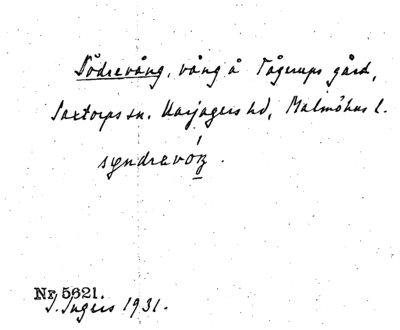 Södrevång, vång å Tågerups gård,
Saxtorps sn. Harjagers hd, Malmöhus l.
syndrevóŋ.
Nr 5621.
I. Ingers 1931.